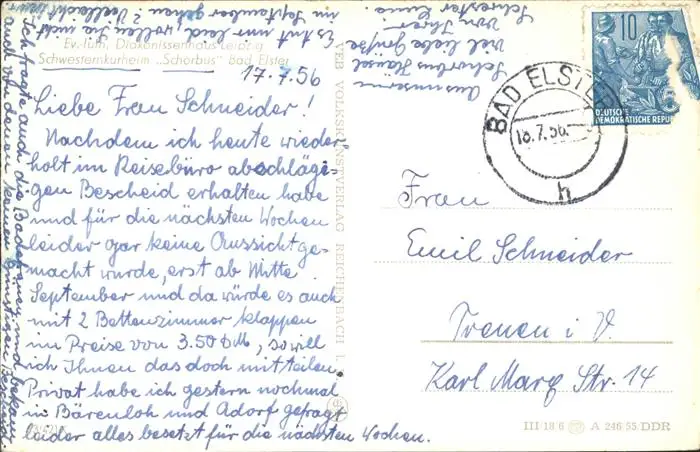 Ev.-luth. Diakonissenhaus Leipzig
Schwesternkurheim „Schorbus" Bad Elster
17.7.56
Liebe Frau Schneider!
Nachdem ich heute wieder
holt im Reisebüro abschlägi-
gen Bescheid erhalten habe
und für die nächsten Wochen
leider gar keine Aussicht ge-
macht wurde, erst ab Mitte
September und da würde es auch
mit 2 Bettenzimmer klappen
im Preise von 3.50 DM, so will
ich Ihnen das doch mitteilen.
Privat habe ich gestern nochmal
in Bärenloh und Adorf gefragt
leider alles besetzt für die nächsten Wochen.
Ich fragte auch die Badefrauen und bekam
auch von denen keinen günstigen Bescheid.
Es tut mir leid, wollen Sie nicht
im September gehen? Vielleicht
Aus unserm
Schorbus
Viel liebe Grüße
von Ihrer
Schwester
VEB VOLKSKUNSTVERLAG REICHENBACH I. V.
10
5
DEUTSCHE
DEMOKRATISCHE REPUB
BAD ELSTER
18.7.56
h
Frau
Emil Schneider
Treuen i. V.
Karl Marx Str. 14
III/18/6 A 246/55/DDR